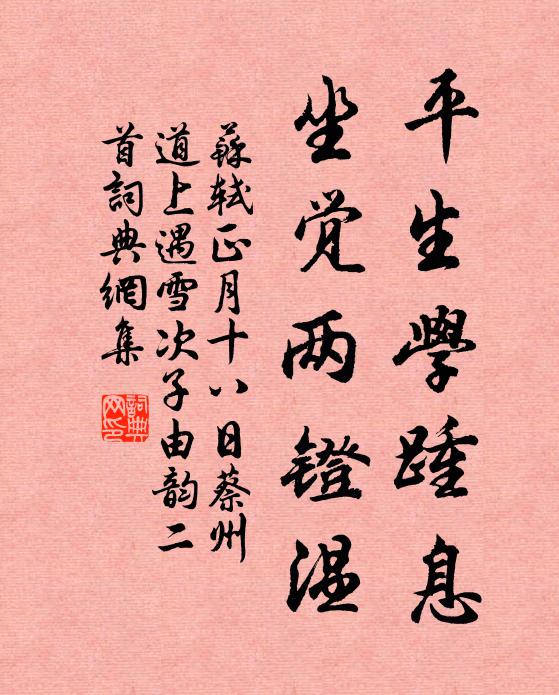 平生學踵息
坐觉两鐙温
蘇軾正月十八日蔡州
道上遇雪次子由韵二
首詞典網集
詞典網印